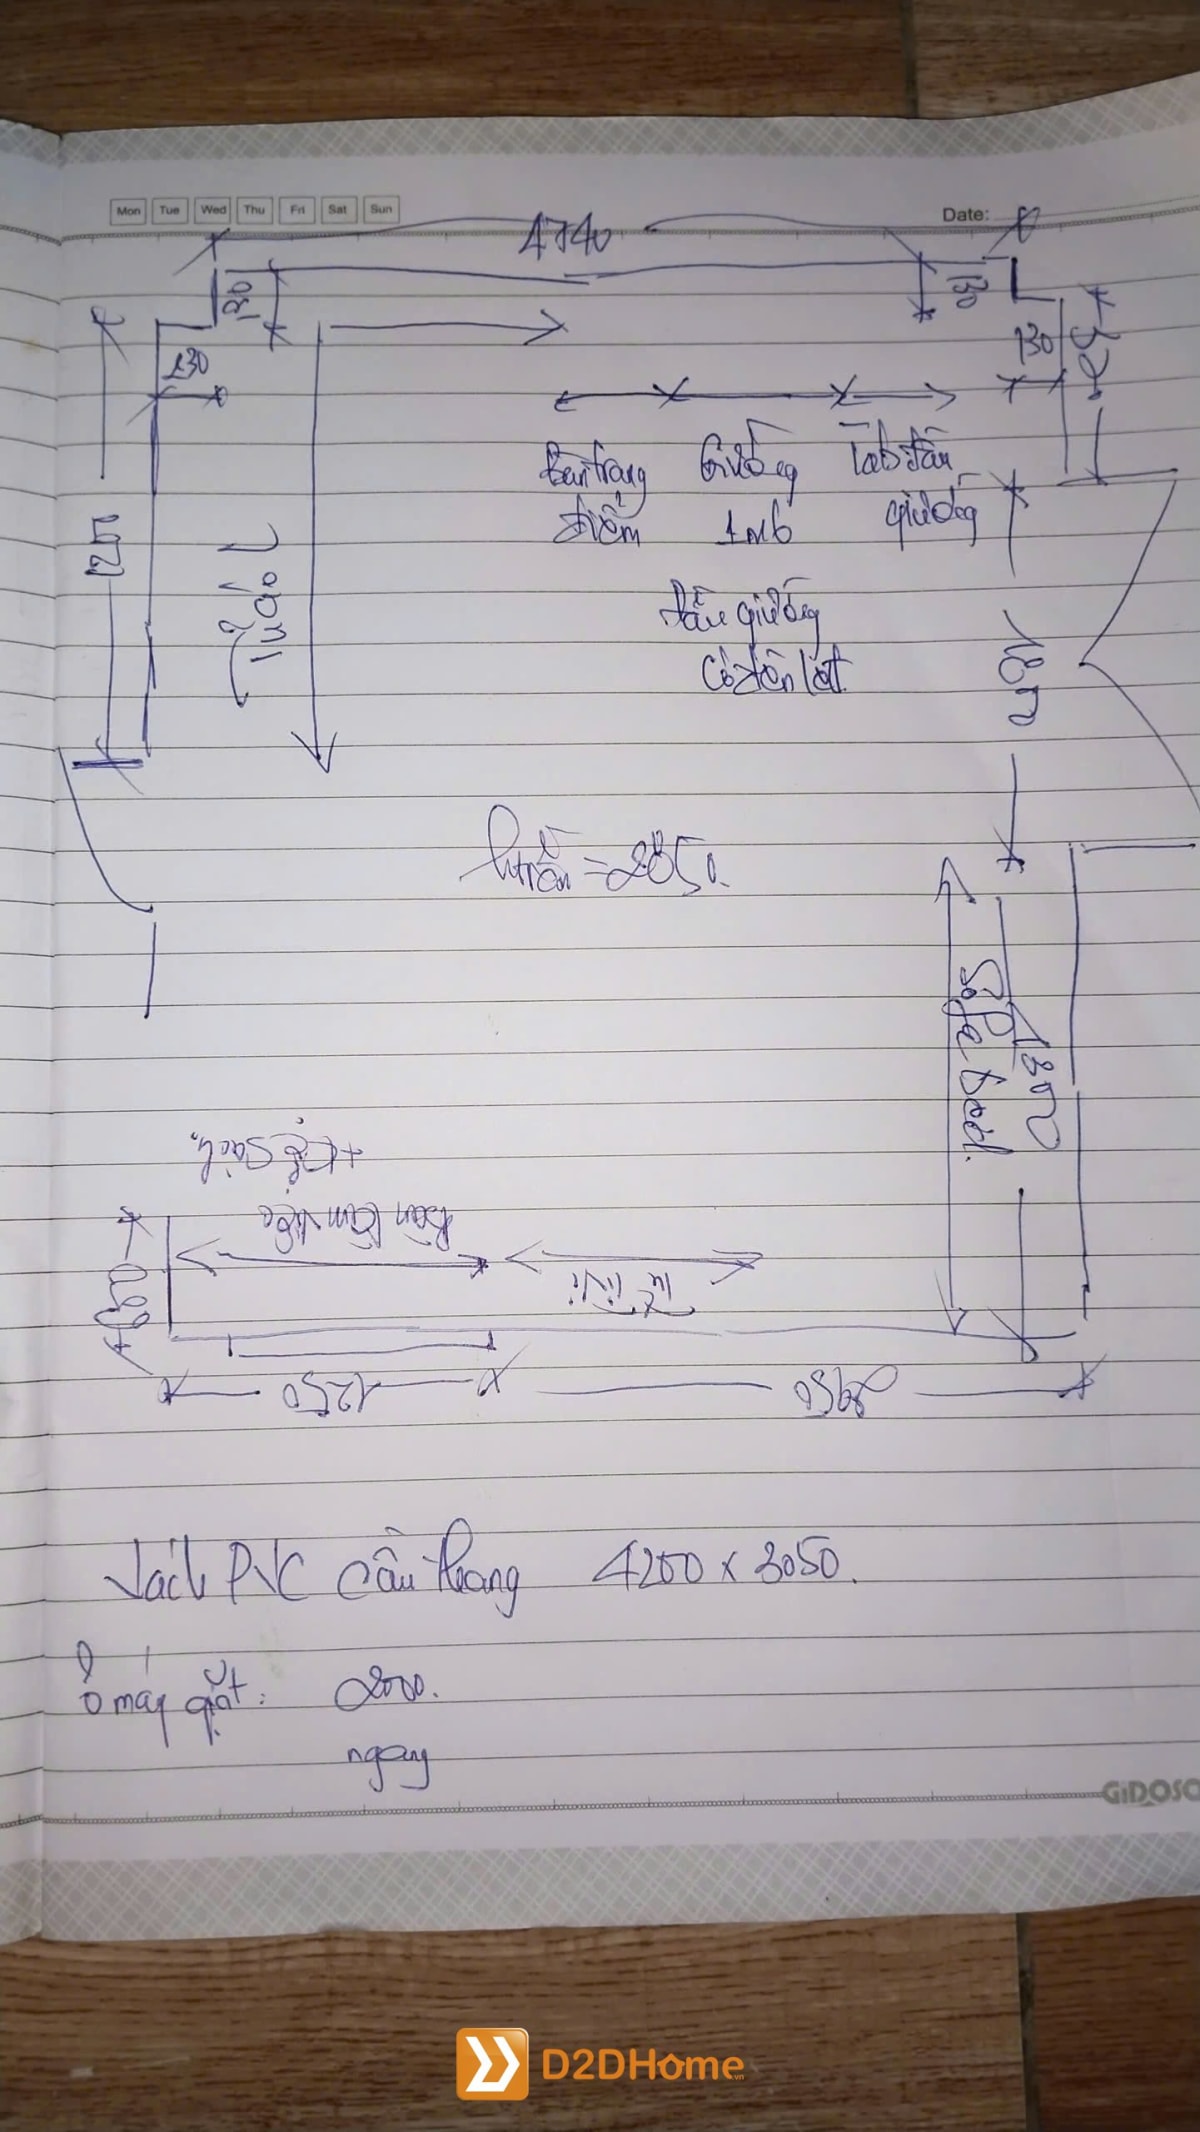 Mon Tue Wed Thu Fri Sat Sun
Date:
4740
130
130
130
130
Tủ áo L
Bàn trang
điểm
Giường
1m6
Tab đầu
giường
đầu giường
có đèn led
1800
h trần = 2850.
Sofa bed.
1800
+ kệ sách
Bàn làm việc
Tủ Tivi
1250
Vách PVC cầu thang 4200 x 3050.
Ô máy giặt: 2000.
ngang
GiDOSO
D2DHome.vn